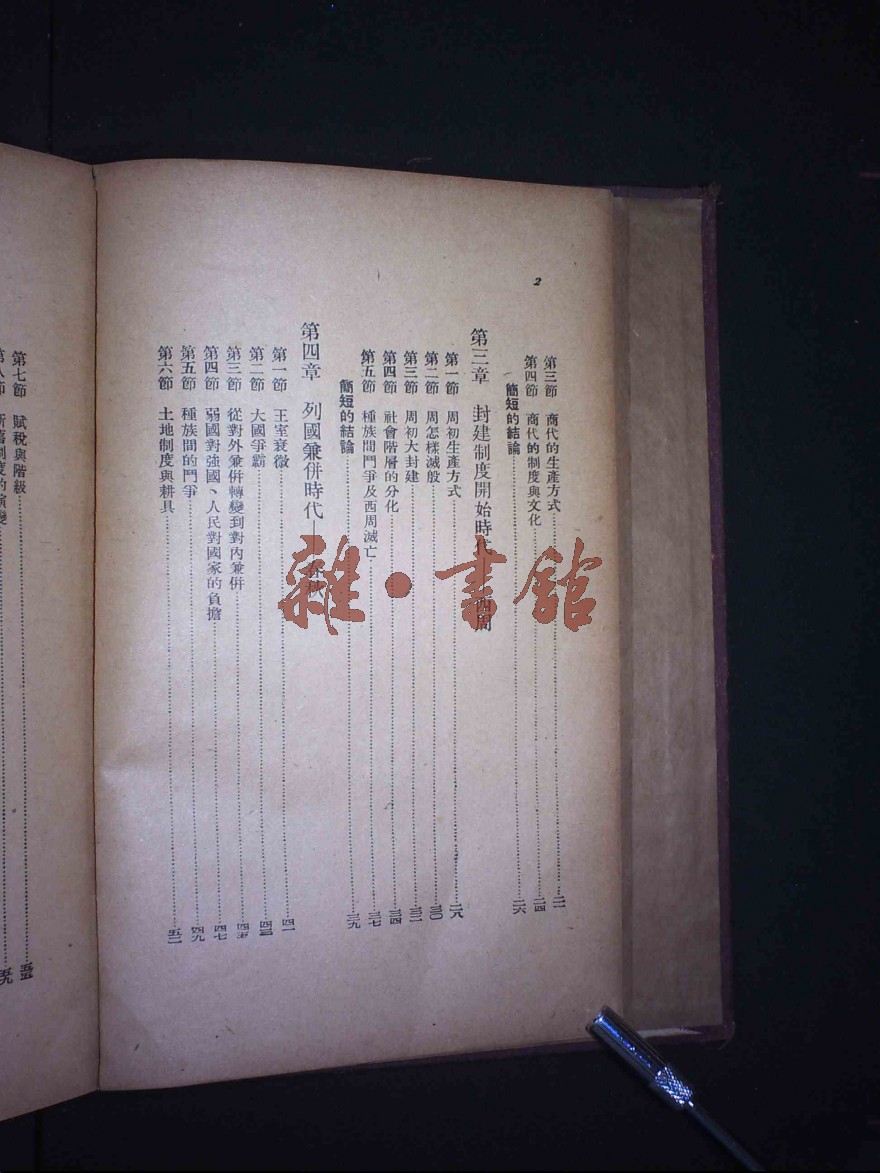 2
第三節 商代的生產方式 二一
第四節 商代的制度與文化 二四
簡短的結論 二六
第三章 封建制度開始時代——西周
第一節 周初生產方式 二八
第二節 周怎樣滅殷 三〇
第三節 周初大封建 三二
第四節 社會階層的分化 三四
第五節 種族間鬥爭及西周滅亡 三七
簡短的結論 三九
第四章 列國兼併時代——春秋
第一節 王室衰微 四一
第二節 大國爭霸 四三
第三節 從對外兼併轉變到對內兼併 四五
第四節 弱國對強國、人民對國家的負擔 四七
第五節 種族間的鬥爭 四九
第六節 土地制度與耕具 五二
第七節 賦稅與階級 五五
第八節 制度的演變 五九
雜·書館